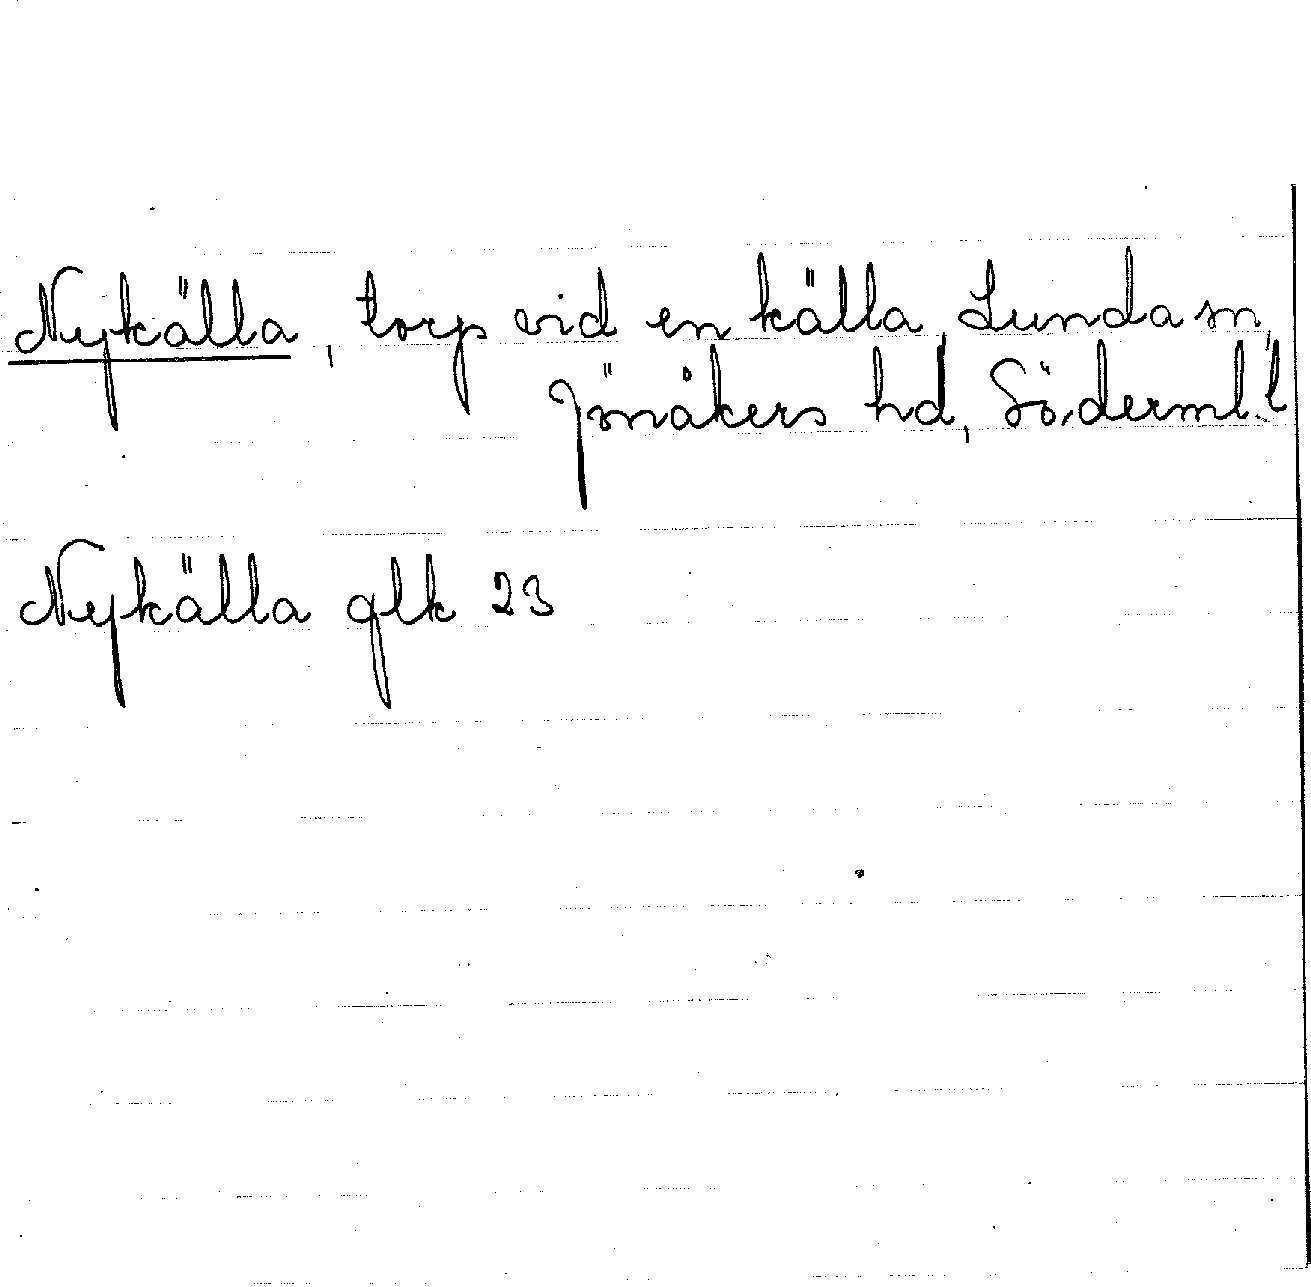 Nykälla, torp vid en källa, Lunda sn,
Jönåkers hd, Söderml. l
Nykälla glk 23